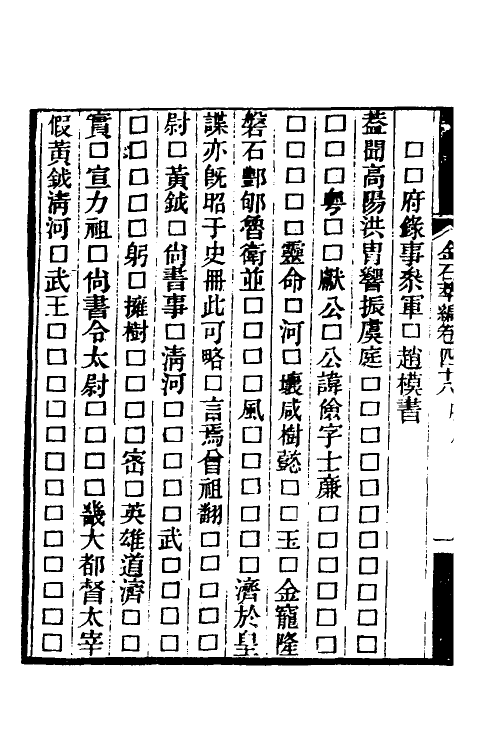 金石萃編卷四十六
□□府錄事叅軍□趙模書
葢聞高陽洪胄響振虞庭□□□□□□□□□□□
□□□粵□□獻公□公諱儉字士廉□□□□□□
□□□□□靈命□河□壤咸樹懿□□玉□金寵隆
磐石酆郇魯衛並□□□□風□□□□□□濟於皇
諜亦旣昭子史冊此可略□言焉曾祖翻□□□□□
尉□黃鉞□尙書事□淸河□□□□□武□□□□
□□□□□躬□擁樹□□□□密□英雄道濟□□
實□宣力祖□尙書令太尉□□□□畿大都督太宰
假黃鉞淸河□武王□□□□□□□□□□□□□